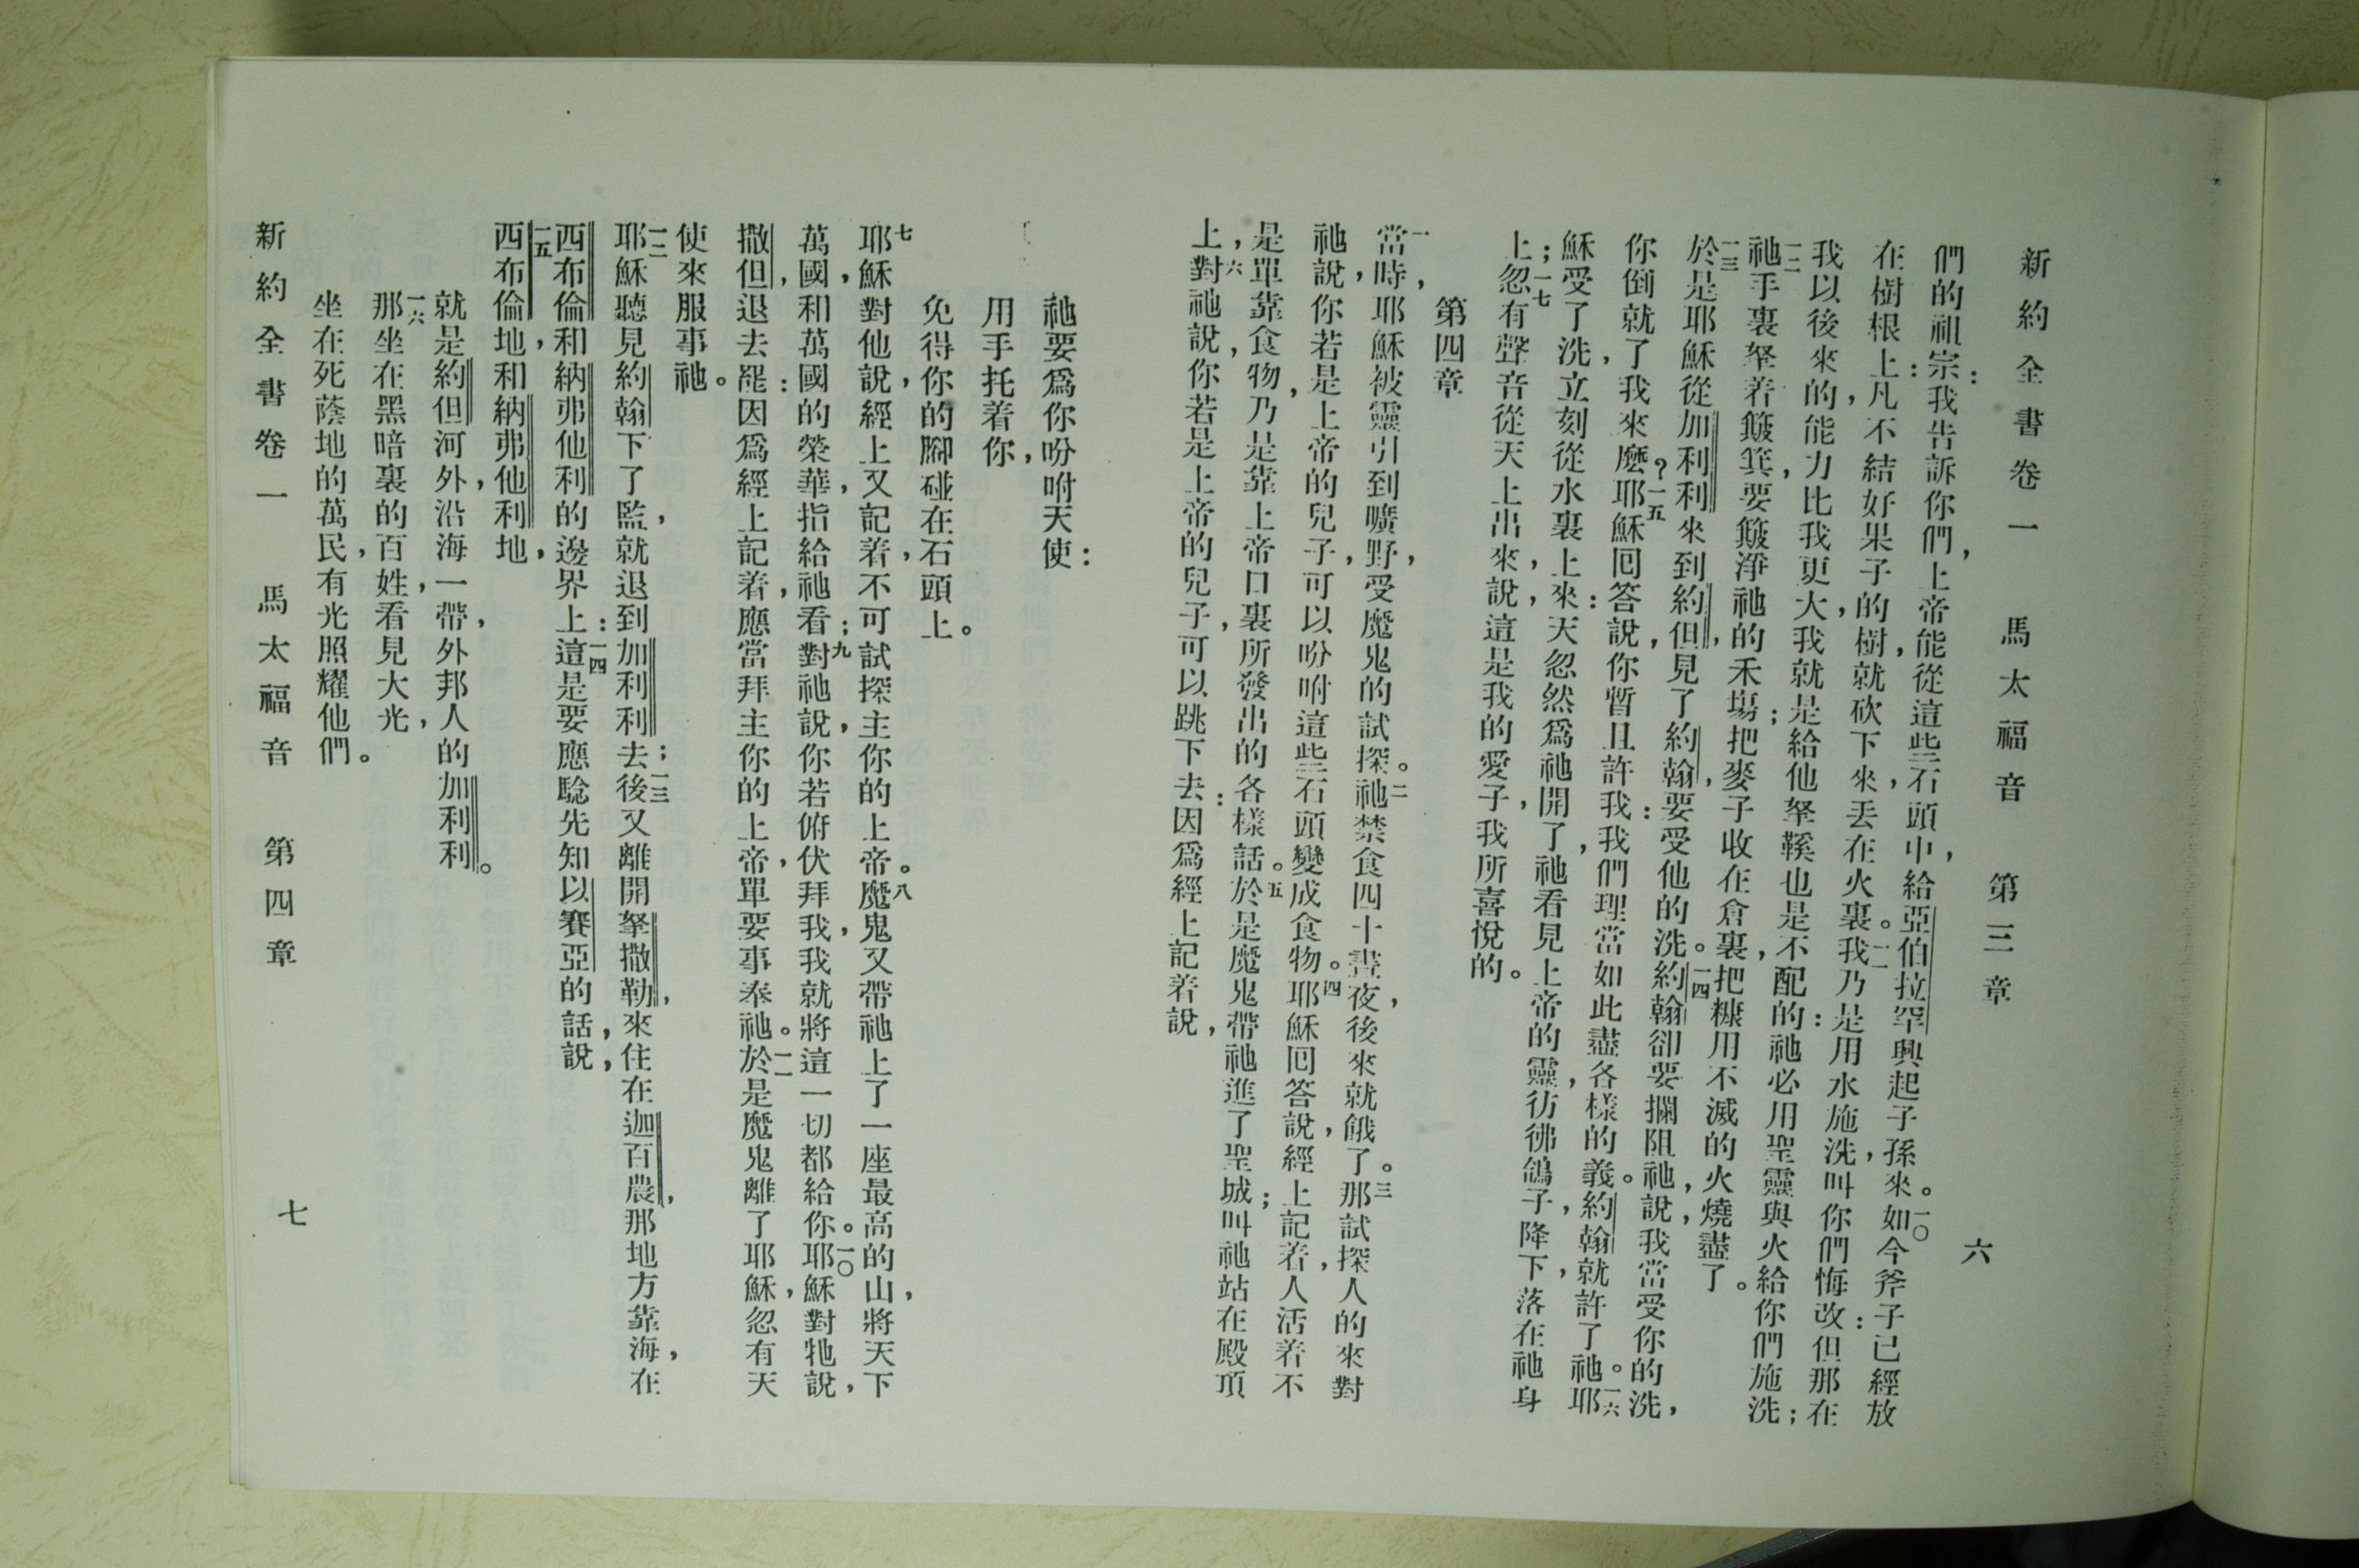 新約全書卷一 馬太福音 第三章 六
們的祖宗：我告訴你們，上帝能從這些石頭中，給亞伯拉罕興起子孫來。一〇如今斧子已經放
在樹根上：凡不結好果子的樹，就砍下來，丟在火裏。一一我乃是用水施洗，叫你們悔改：但那在
我以後來的，能力比我更大，我就是給他拏鞵也是不配的：祂必用聖靈與火給你們施洗；
一二祂手裏拏着簸箕，要簸淨祂的禾場；把麥子收在倉裏，把糠用不滅的火燒盡了。
一三於是耶穌從加利利來到約但，見了約翰，要受他的洗。一四約翰卻要攔阻祂，說，我當受你的洗，
你倒就了我來麼？一五耶穌回答說，你暫且許我：我們理當如此盡各樣的義。約翰就許了祂。一六耶
穌受了洗，立刻從水裏上來：天忽然爲祂開了，祂看見上帝的靈，彷彿鴿子，降下，落在祂身
上；一七忽有聲音從天上出來，說，這是我的愛子，我所喜悅的。
第四章
一當時，耶穌被靈引到曠野，受魔鬼的試探。二祂禁食四十晝夜，後來就餓了。三那試探人的來對
祂說，你若是上帝的兒子，可以吩咐這些石頭變成食物。四耶穌回答說，經上記着，人活着不
是單靠食物，乃是靠上帝口裏所發出的各樣話。五於是魔鬼帶祂進了聖城；叫祂站在殿頂
上，六對祂說，你若是上帝的兒子，可以跳下去：因爲經上記着說，
祂要爲你吩咐天使：
用手托着你，
免得你的腳碰在石頭上。
七耶穌對他說，經上又記着，不可試探主你的上帝。八魔鬼又帶祂上了一座最高的山，將天下
萬國，和萬國的榮華，指給祂看；九對祂說，你若俯伏拜我，我就將這一切都給你。一〇耶穌對牠說，
撒但，退去罷：因爲經上記着，應當拜主你的上帝，單要事奉祂。一一於是魔鬼離了耶穌，忽有天
使來服事祂。
一二耶穌聽見約翰下了監，就退到加利利去；一三後又離開拏撒勒，來住在迦百農，那地方靠海，在
西布倫和納弗他利的邊界上：一四這是要應驗先知以賽亞的話，說，
一五西布倫地，和納弗他利地，
就是約但河外，沿海一帶，外邦人的加利利。
一六那坐在黑暗裏的百姓，看見大光，
坐在死蔭地的萬民，有光照耀他們。
新約全書卷一 馬太福音 第四章 七